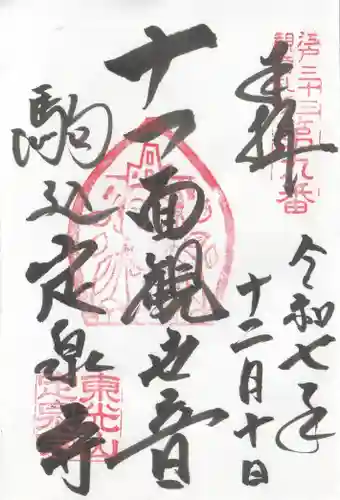 奉拝
江戸三十三
観音札所第九番
令和七年
十二月十日
十一面観世音
駒込定泉寺
東光山
定泉寺